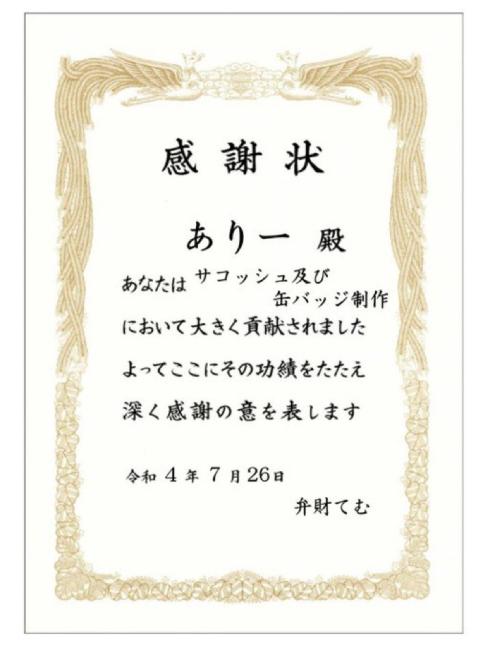 感謝状
ありー 殿
あなたは サコッシュ及び
缶バッジ制作
において大きく貢献されました
よってここにその功績をたたえ
深く感謝の意を表します
令和 4 年 7 月 26日
弁財てむ